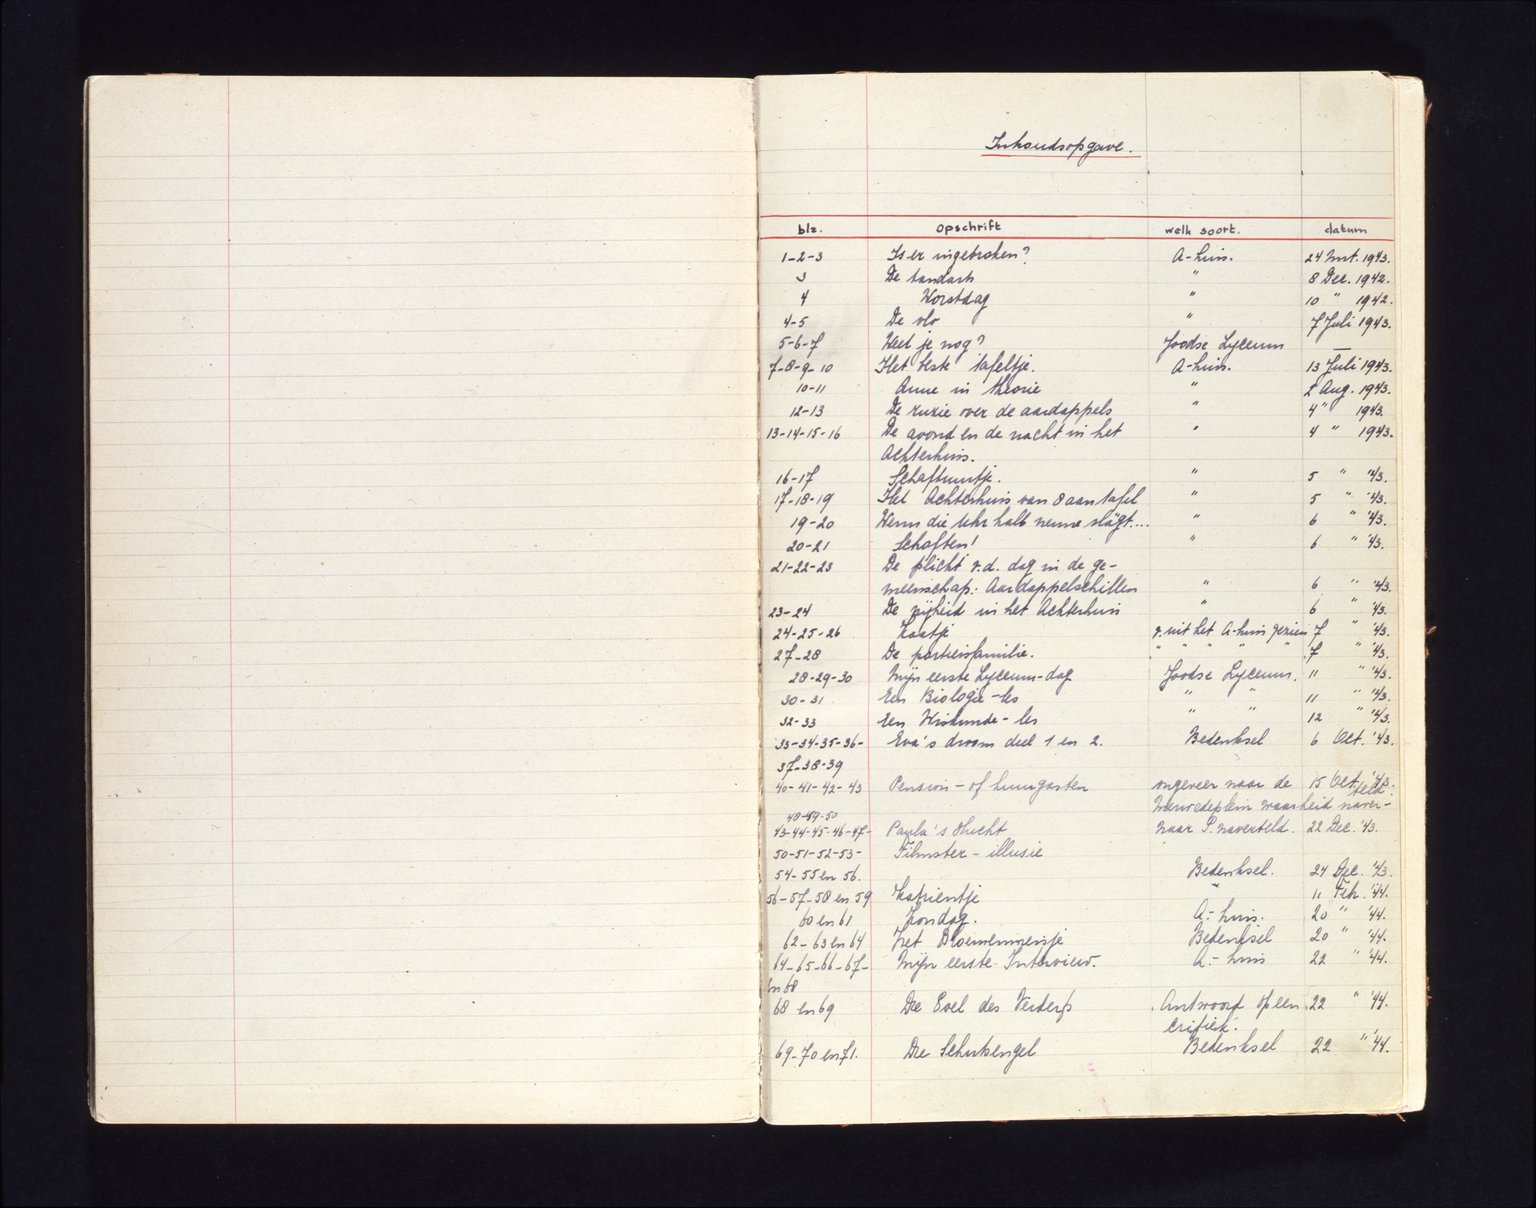 Inhoudsopgave.
blz. opschrift welk soort. datum
1-2-3 Is er ingebroken? A-huis. 24 Mrt. 1943.
3 De tandarts " 8 Dec. 1942.
4 Worstdag " 10 " 1942.
4-5 De vlo " 7 Juli 1943.
5-6-7 Weet je nog? Joodse Lyceum —
7-8-9-10 Het beste tafeltje. A-huis. 13 Juli 1943.
10-11 Anne in theorie " 2 Aug. 1943.
12-13 De ruzie over de aardappels " 4 " 1943.
13-14-15-16 De avond en de nacht in het " 4 " 1943.
Achterhuis.
16-17 Schaftuurtje. " 5 " '43.
17-18-19 Het Achterhuis van 8 aan tafel " 5 " '43.
19-20 Wenn die Uhr halb neune slägt.... " 6 " '43.
20-21 Schaften! " 6 " '43.
21-22-23 De plicht v.d. dag in de ge-
meenschap: Aardappelschillen " 6 " '43.
23-24 De vrijheid in het Achterhuis " 6 " '43.
24-25-26 Kaatje v. uit het A-huis gezien 7 " '43.
27-28 De portiersfamilie. " " " " " 7 " '43.
28-29-30 Mijn eerste Lyceum-dag Joodse Lyceum. 11 " '43.
30-31 Een Biologie-les " " 11 " '43.
32-33 Een Wiskunde-les " " 12 " '43.
33-34-35-36- Eva's droom deel 1 en 2. Bedenksel 6 Oct. '43.
37-38-39
40-41-42-43 Pension- of huurgasten ongeveer naar de 15 Oct. '43.
waarheid naver- teld.
48-49-50
43-44-45-46-47- Paula's vlucht naar P. naverteld. 22 Dec. '43.
50-51-52-53- Filmster-illusie
54-55 en 56. Bedenksel. 24 Dec. '43.
56-57-58 en 59 Katrientje " 11 Feb. '44.
60 en 61 Zondag. A.-huis. 20 " '44.
62-63 en 64 Het Bloemenmeisje Bedenksel 20 " '44.
64-65-66-67- Mijn eerste Interview. A.-huis 22 " '44.
en 68
68 en 69 Antwoord op een 22 " '44.
critiek.
69-70 en 71. Die Schutsengel Bedenksel 22 " '44.